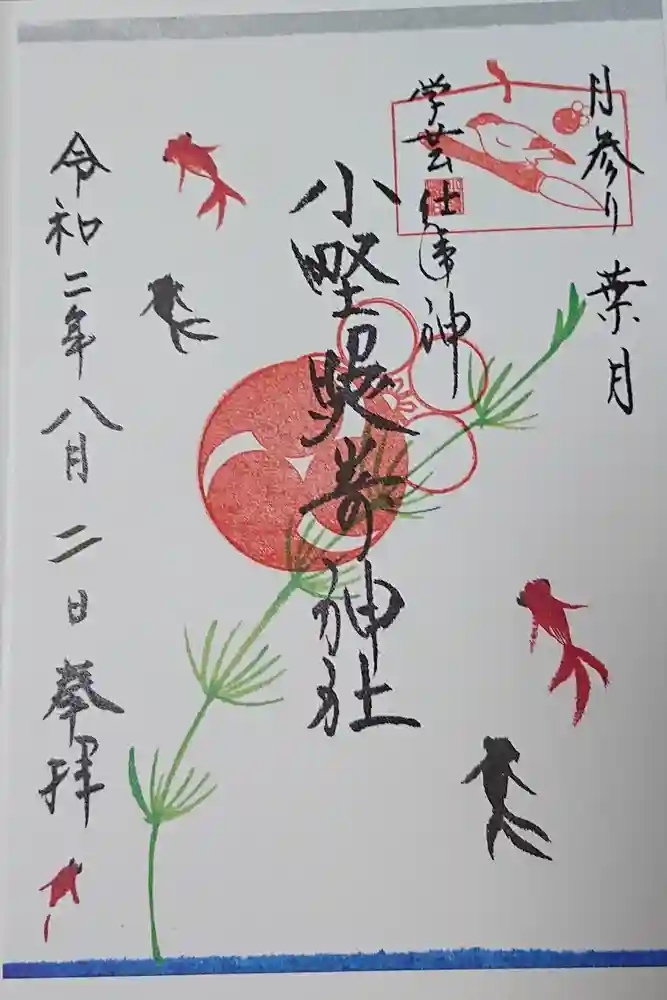 月参り 葉月
学芸仕事神
小野照崎神社
令和二年八月二日奉拝